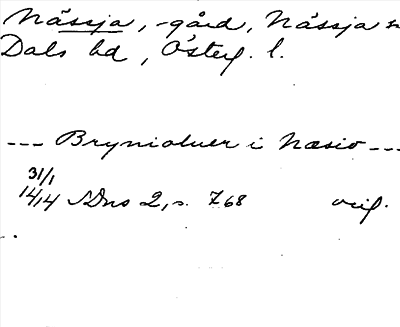 Nässja, -gård, Nässja sn
Dals hd, Österg. l.
--- Brynioluer i Næsio ---
31/1
1414 SDns 2, s. 768 orig.